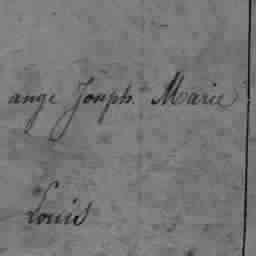 ange Joseph. Marie
Louis